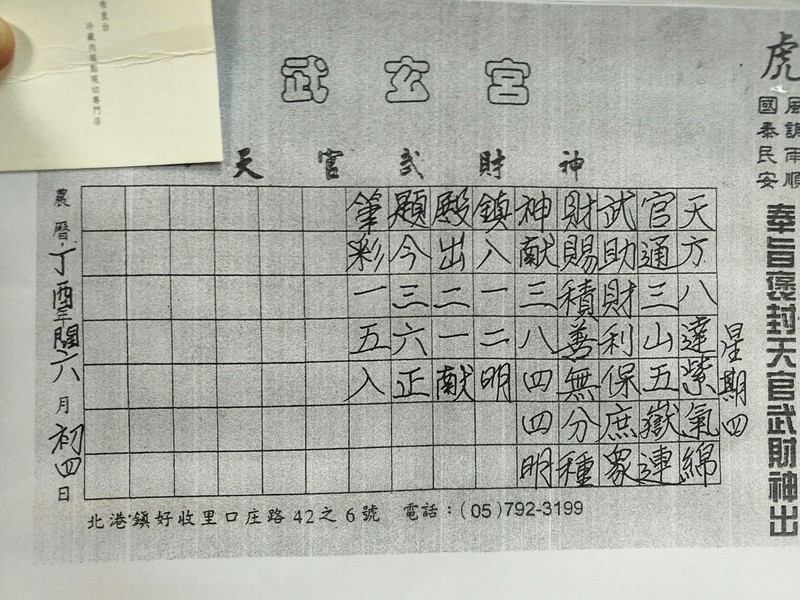 武玄宮
天官武財神
虎
風調雨順
國泰民安
奉旨褒封天官武財神出
星期四
天方八達紫氣綿
官通三山五嶽連
武助財利保庶眾
財賜積善無分種
神献三八四四明
鎮入一二明
殿出二一献
題今三六正
筆彩一五入
農曆丁酉年閏六月初四日
北港鎮好收里口庄路42之6號 電話：(05)792-3199